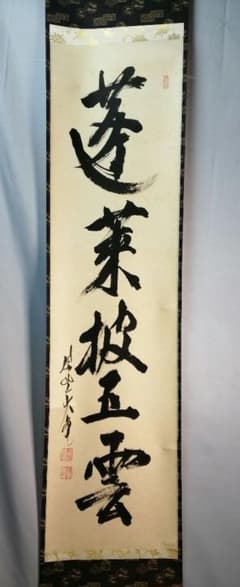 蓬莱披五雲